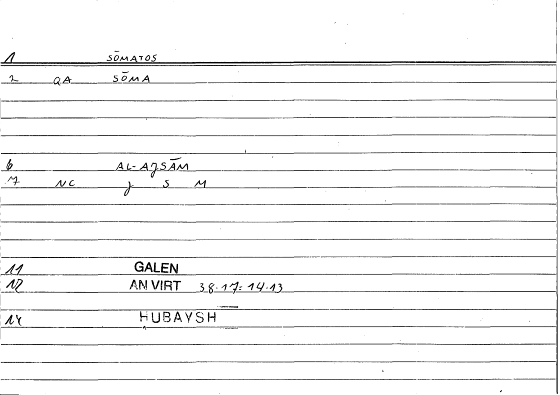 1 SŌMATOS
2 QA SŌMA
6 AL-AJSĀM
7 NC J S M
11 GALEN
12 AN VIRT 38.17=14.13
14 HUBAYSH